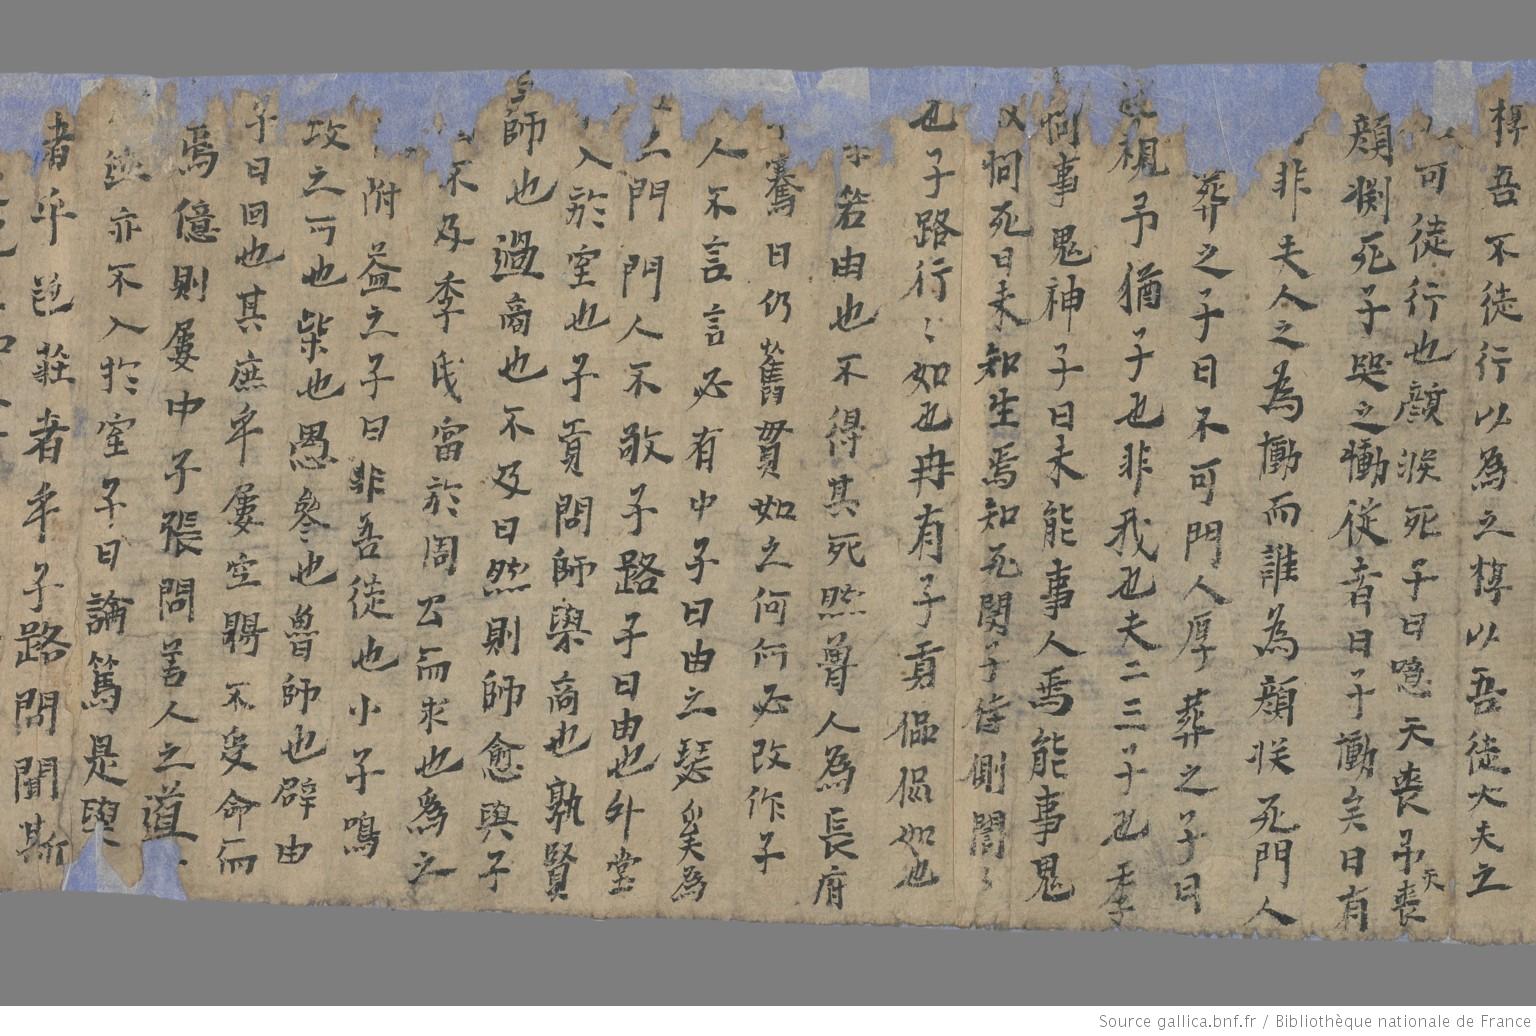 椁吾不徒行以為之椁以吾徒大夫之
可徒行也顔渕死子曰噫天喪予天喪
顔渕死子哭之慟従者曰子慟矣曰有
非夫人之為慟而誰為顔渕死門人
葬之子曰不可門人厚葬之子曰
視予猶子也非我也夫二三子也季
問事鬼神子曰未能事人焉能事鬼
問死曰未知生焉知死閔子侍側誾〻
也子路行〻如也冉有子貢侃侃如也
若由也不得其死然魯人為長府
騫曰仍舊貫如之何何必改作子
人不言言必有中子曰由之瑟奚為
之門門人不敬子路子曰由也外堂
入於室也子貢問師與商也孰賢
師也過商也不及曰然則師愈與子
不及季氏富於周公而求也為之
附益之子曰非吾徒也小子鳴
攻之可也柴也愚參也魯師也辟由
子曰回也其庶乎屢空賜不受命而
焉億則屢中子張問善人之道
亦不入於室子曰論篤是與
者乎色莊者乎子路問聞斯
Source gallica.bnf.fr / Bibliothèque nationale de France